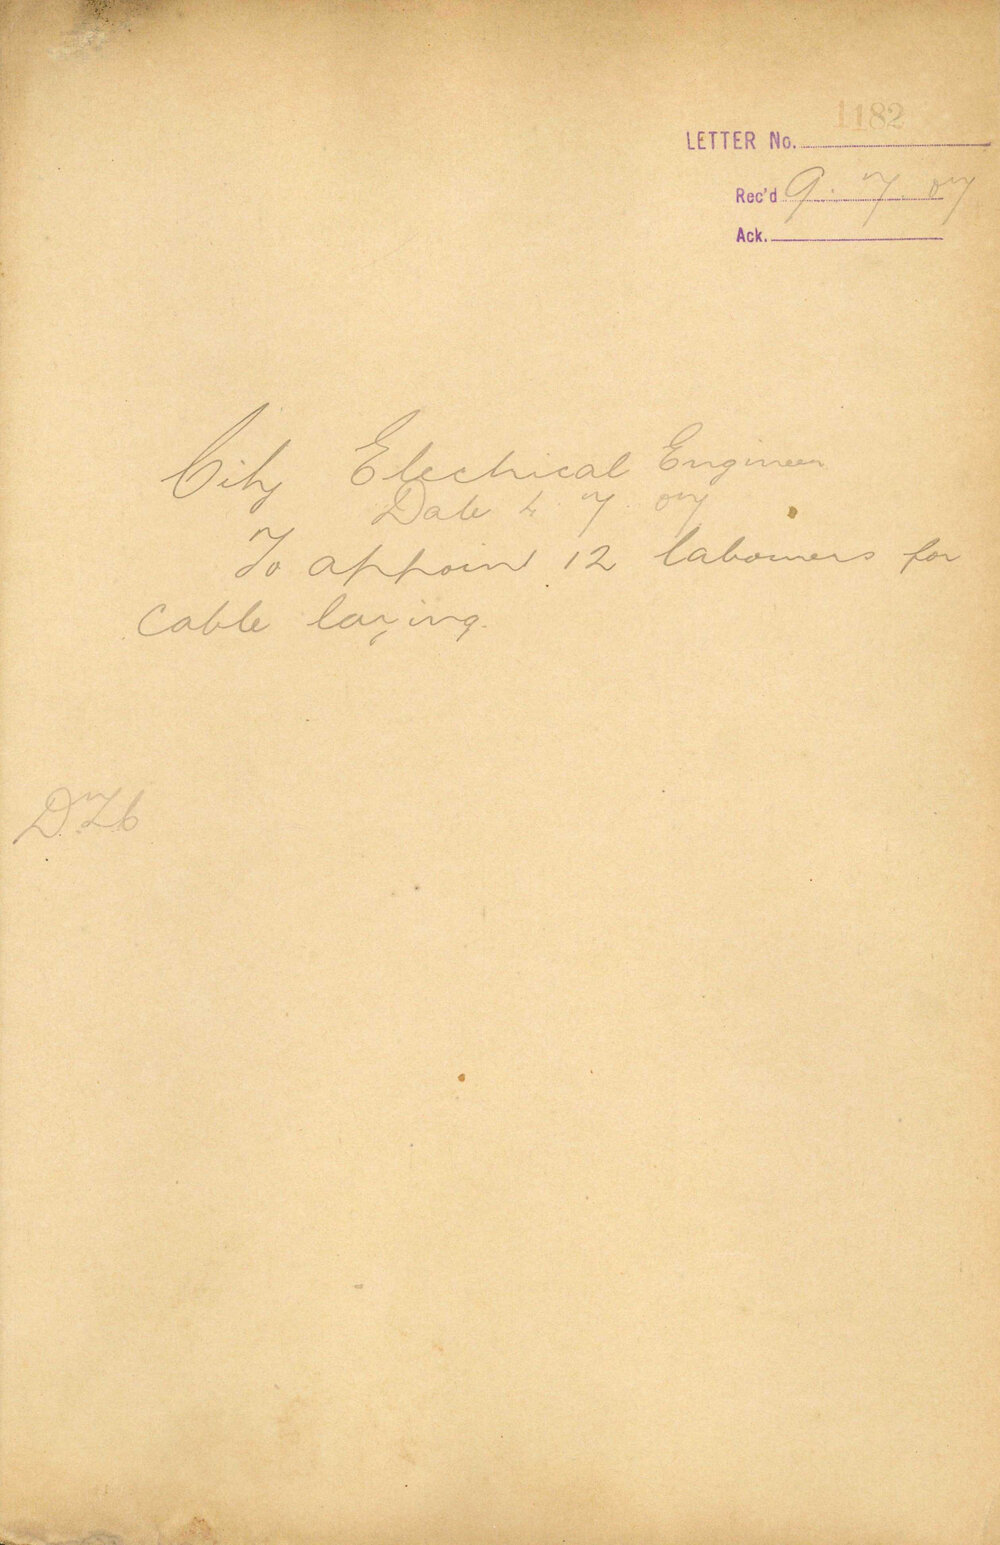 1182
LETTER No.
Rec'd 9. 7. 07
Ack.
City Electrical Engineer
Date 4. 7. 07
To appoint 12 labourers for
cable laying.